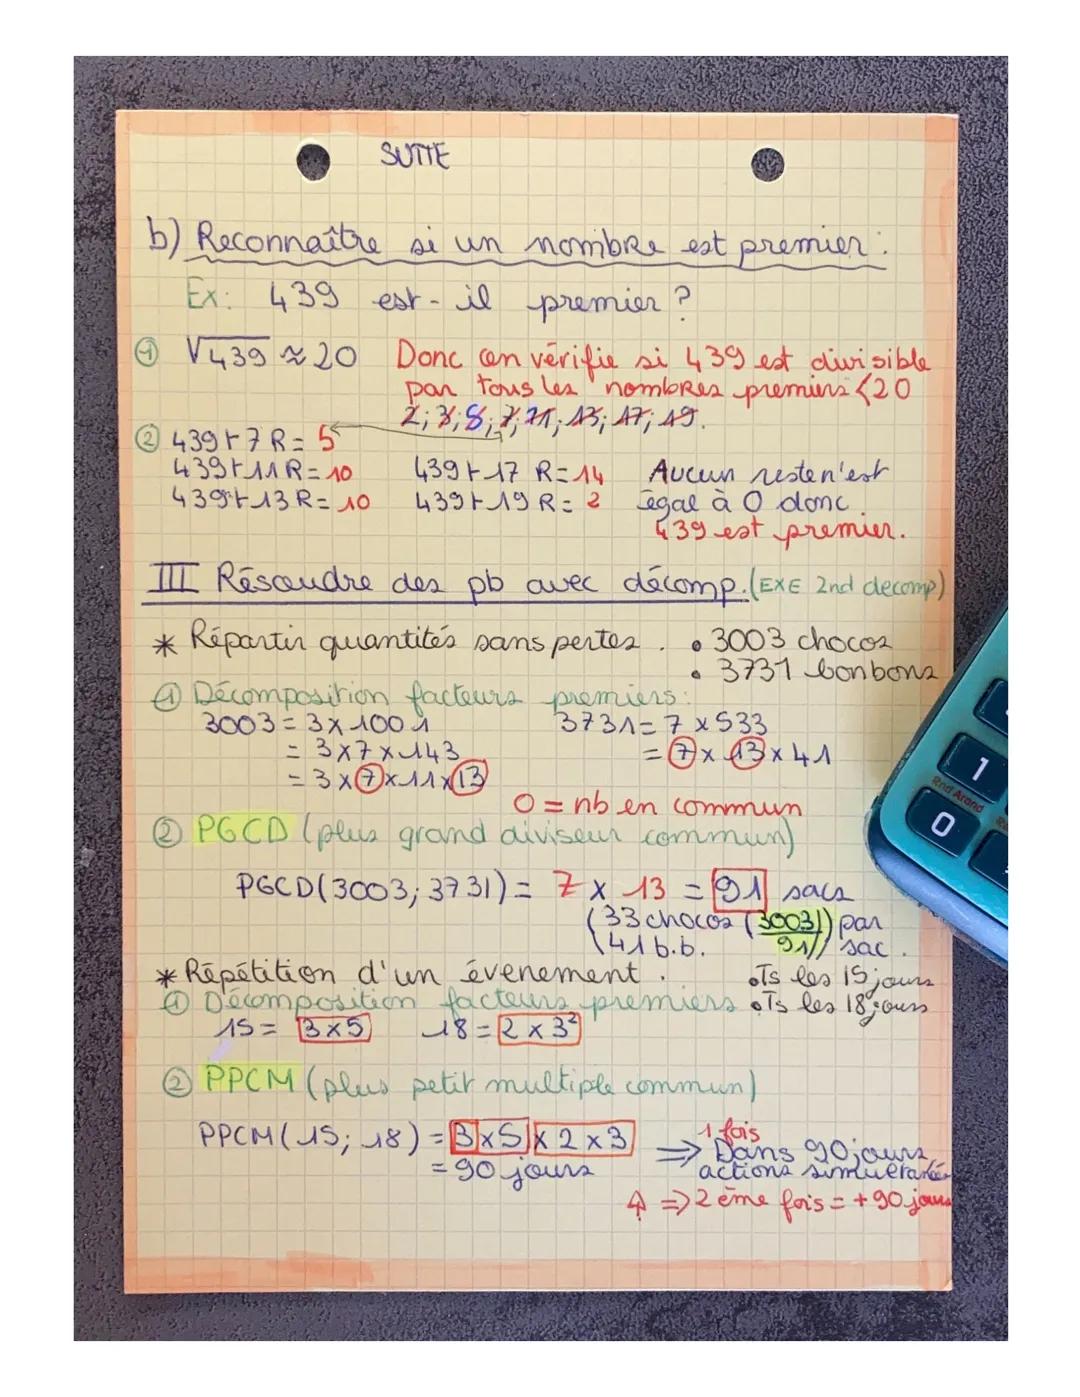 SUITE
b) Reconnaître si un nombre est premier :
Ex: 439 est-il premier ?
① √439 ≈ 20 Donc on vérifie si 439 est divisible
par tous les nombres premiers < 20
2; 3; 5; 7; 11; 13; 17; 19.
② 439 ⊢ 7 R= 5
439 ⊢ 11 R= 10 439 ⊢ 17 R= 14 Aucun reste n'est
439 ⊢ 13 R= 10 439 ⊢ 19 R= 2 égal à 0 donc
439 est premier.
III Résoudre des pb avec décomp. (EXE 2nd decomp)
* Répartir quantités sans pertes . • 3003 chocos
• 3731 bonbons
① Décomposition facteurs premiers:
3003 = 3 x 1001 3731 = 7 x 533
= 3 x 7 x 143 = 7 x 13 x 41
= 3 x 7 x 11 x 13
O = nb en commun
② PGCD (plus grand diviseur commun)
PGCD(3003; 3731) = 7 x 13 = 91 sacs
(33 chocos (3003/91) par
41 b.b. sac .
* Répétition d'un évenement . • Ts les 15 jours
① Décomposition facteurs premiers • Ts les 18 jours
15 = 3x5 18 = 2 x 3²
② PPCM (plus petit multiple commun)
PPCM(15; 18) = 3x5 x 2 x 3 ⇒ 1 fois Dans 90 jours,
= 90 jours actions simultanées
⇒ 2ème fois = +90 jours
1
Rnd Arand
0